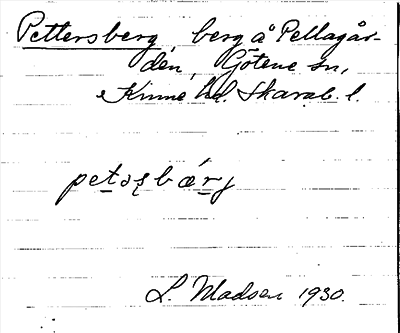 Pettersberg, berg å Pellagår-
den, Götene sn,
Kinne hd. Skarab. l.
petəʂbærj
L. Madsen 1930.